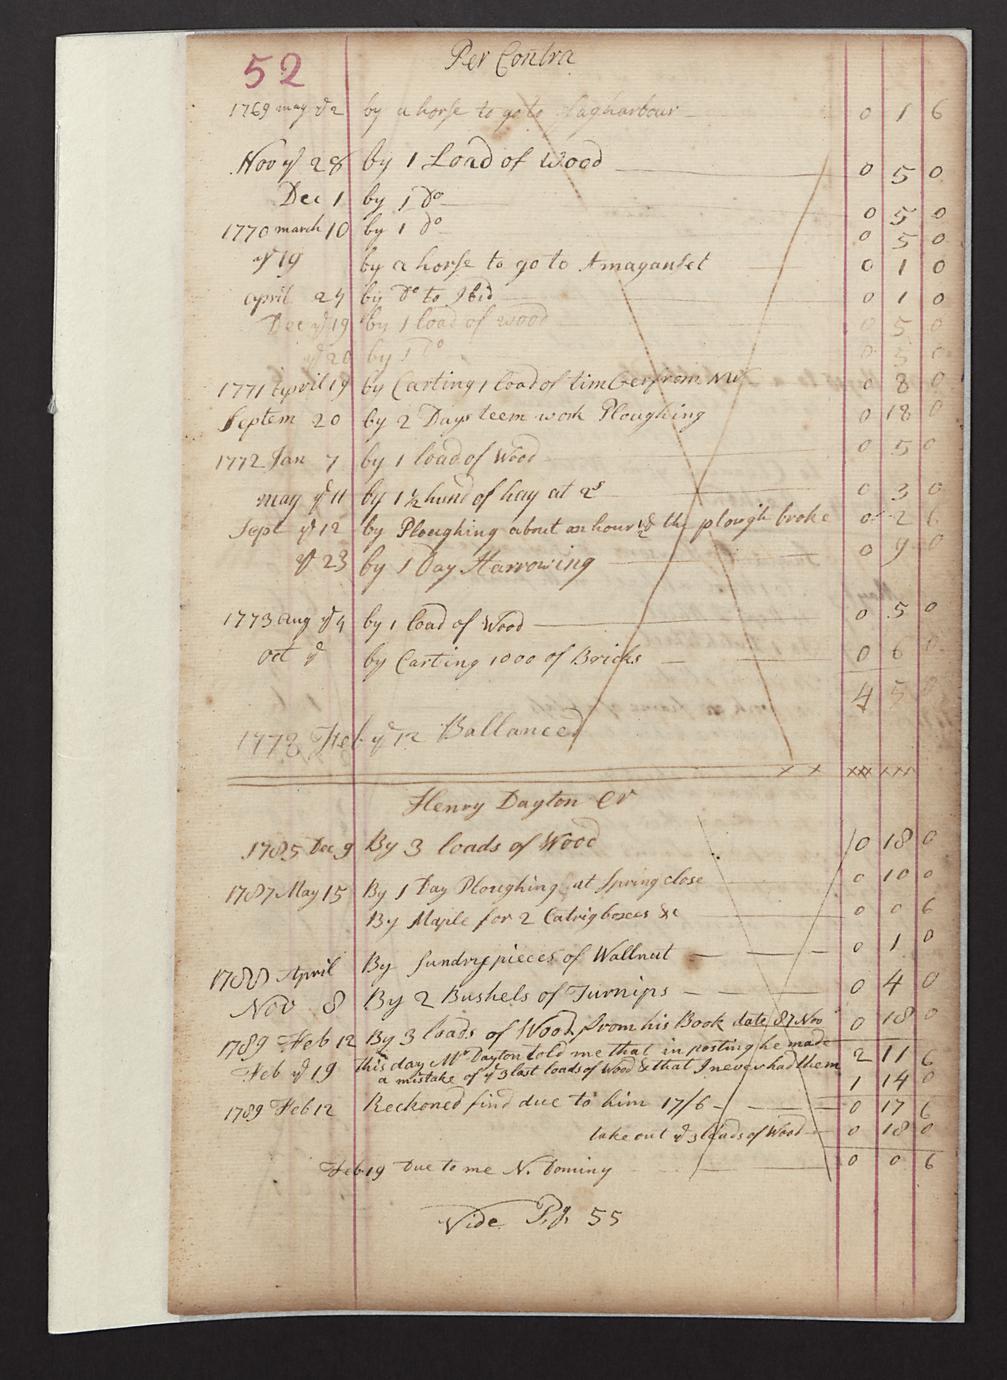 52
Per Contra
1769 may ye 2 by a horse to go to Sagharbour 0 1 6
Nov ye 28 by 1 Load of Wood 0 5 0
Dec 1 by 1 Do 0 5 0
1770 march 10 by 1 do 0 5 0
ye 19 by a horse to go to Amaganset 0 1 0
april 24 by Do to Ibid 0 1 0
Dec ye 19 by 1 load of wood 0 5 0
ye 20 by 1 Do 0 5 0
1771 April 19 by Carting 1 load of timber from NW 0 8 0
Septem 20 by 2 Days teem work Ploughing 0 18 0
1772 Jan 7 by 1 load of Wood 0 5 0
may ye 11 by 1 ½ hund of hay at 2s 0 3 0
Sept ye 12 by Ploughing about an hour & the plough broke 0 2 6
ye 23 by 1 Day Harrowing 0 9 0
1773 aug ye 4 by 1 load of Wood 0 5 0
oct ye by Carting 1000 of Bricks 0 6 0
4 5 0
1778 Feb ye 12 Ballanced
Henry Dayton Cr
1785 Dec 9 By 3 loads of Wood 0 18 0
1787 May 15 By 1 Day Ploughing at Spring close 0 10 0
By Maple for 2 Catrig boxes &c 0 0 6
1788 April By sundry pieces of Wallnut 0 1 0
Nov 8 By 2 Bushels of Turnips 0 4 0
1789 Feb 12 By 3 loads of Wood from his Book date 87 Nov 0 18 0
Feb ye 19 this day Mr Dayton told me that in posting he made 2 11 6
a mistake of ye 3 last loads of Wood & that I never had them 1 14 0
1789 Feb 12 Reckoned find due to him 17/6 0 17 6
take out ye 3 loads of Wood 0 18 0
Feb 19 Due to me N. Dominy 0 0 6
Vide Pg. 55